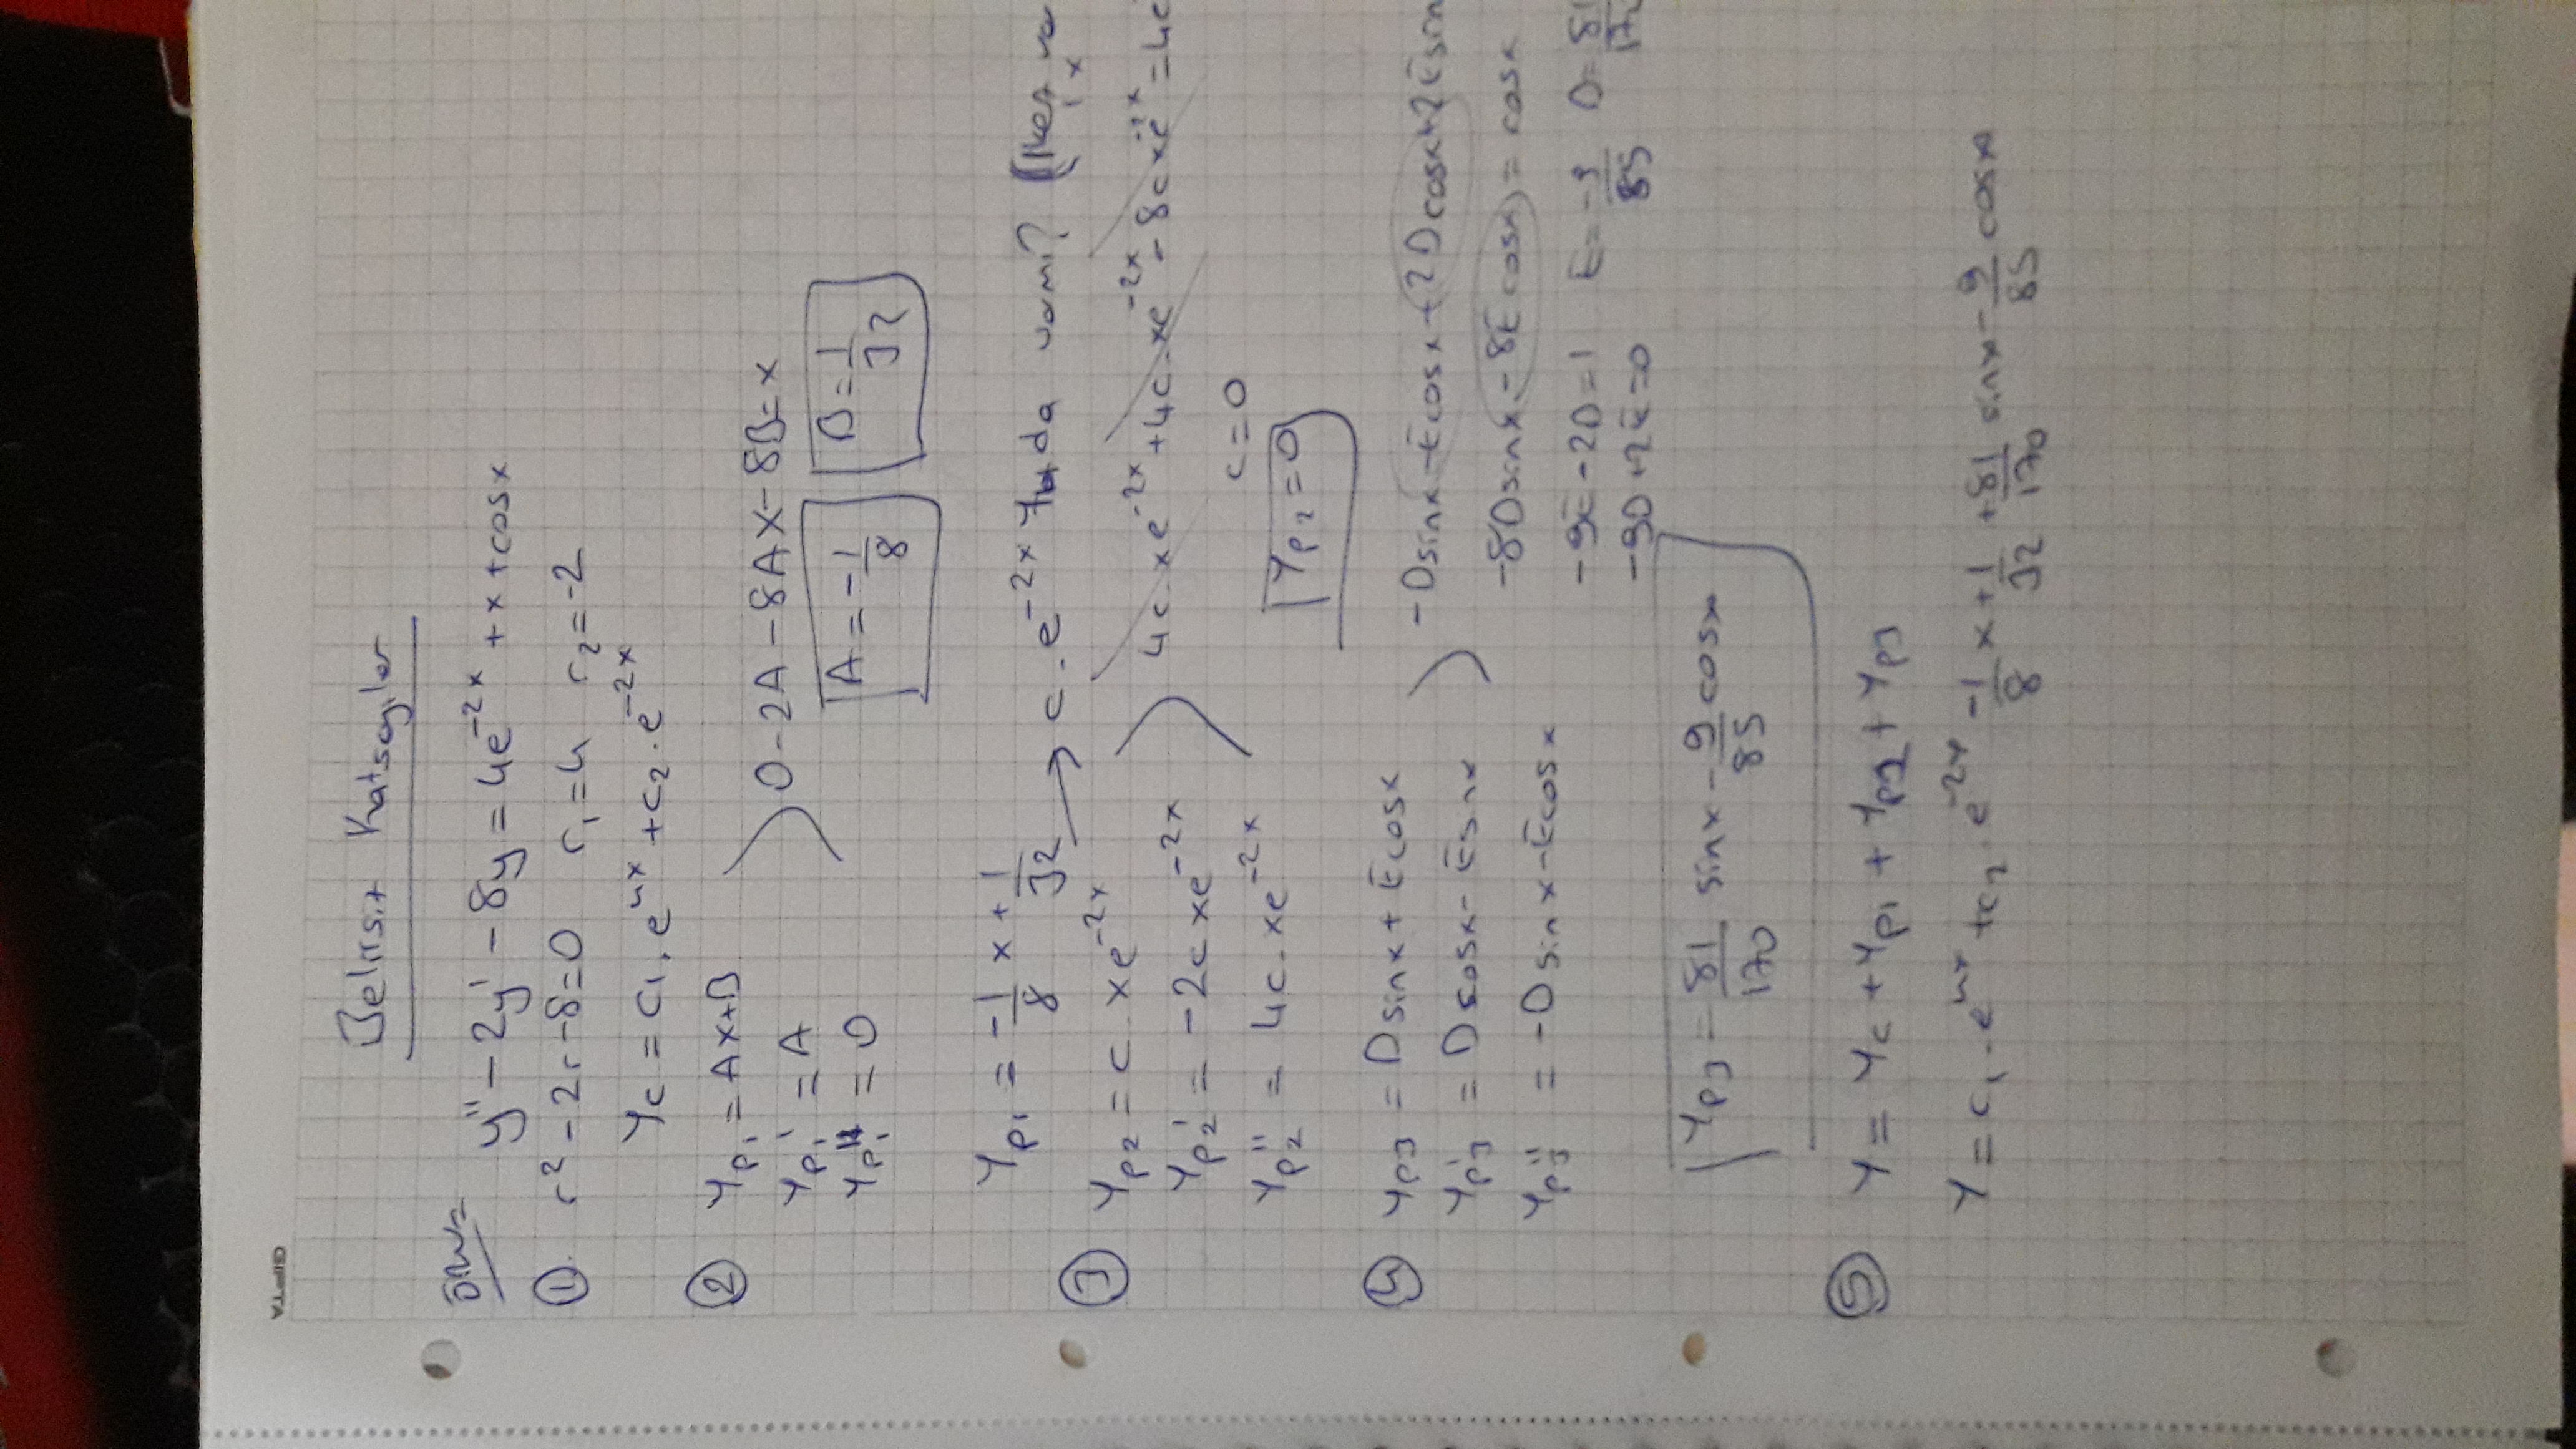 GIPTA
Belirsiz Katsayılar
ÖRN=
y'' - 2y' - 8y = 4e^-2x + x + cosx
① r² - 2r - 8 = 0 r₁ = 4 r₂ = -2
Yc = c₁ . e^4x + c₂ . e^-2x
② Yp₁ = Ax + B
Yp₁' = A
Yp₁'' = 0
0 - 2A - 8Ax - 8B = x
A = -1/8 B = 1/32
Yp₁ = -1/8 x + 1/32
→ c . e^-2x da var mı?
③ Yp2 = c . xe^-2x
Yp2' = -2c xe^-2x
Yp2'' = 4c . xe^-2x
4c . xe^-2x + 4c . xe^-2x - 8c xe^-2x = 4e
c = 0
Yp2 = 0
④ Yp3 = Dsinx + Ecosx
Yp3' = Dcosx - Esinx
Yp3'' = -Dsinx - Ecosx
-Dsinx - Ecosx + 2Dcosx + 2Esin
-8Dsinx - 8Ecosx = cosx
-9E - 2D = 1 E = -9/85 D = 81/170
-9D + 2E = 0
Yp3 = 81/170 sinx - 9/85 cosx
⑤ Y = Yc + Yp1 + Yp2 + Yp3
Y = c₁ . e^4x + c₂ . e^-2x - 1/8 x + 1/32 + 81/170 sinx - 9/85 cosx